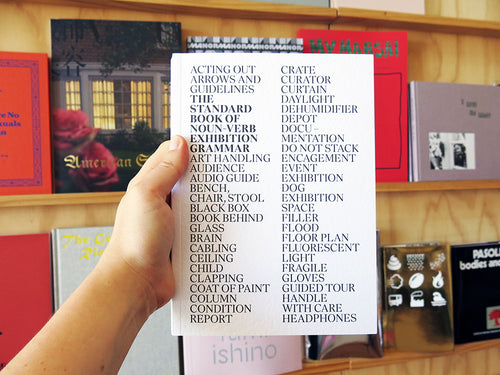 ACTING OUT
ARROWS AND
GUIDELINES
THE
STANDARD
BOOK OF
NOUN-VERB
EXHIBITION
GRAMMAR
ART HANDLING
AUDIENCE
AUDIO GUIDE
BENCH,
CHAIR, STOOL
BLACK BOX
BOOK BEHIND
GLASS
BRAIN
CABLING
CEILING
CHILD
CLAPPING
COAT OF PAINT
COLUMN
CONDITION
REPORT
CRATE
CURATOR
CURTAIN
DAYLIGHT
DEHUMIDIFIER
DEPOT
DOCU–
MENTATION
DO NOT STACK
ENCAGEMENT
EVENT
EXHIBITION
DOG
EXHIBITION
SPACE
FILLER
FLOOD
FLOOR PLAN
FLUORESCENT
LIGHT
FRAGILE
GLOVES
GUIDED TOUR
HANDLE
WITH CARE
HEADPHONES
MY MANGA!
American
PASOL
bodies and
ishino